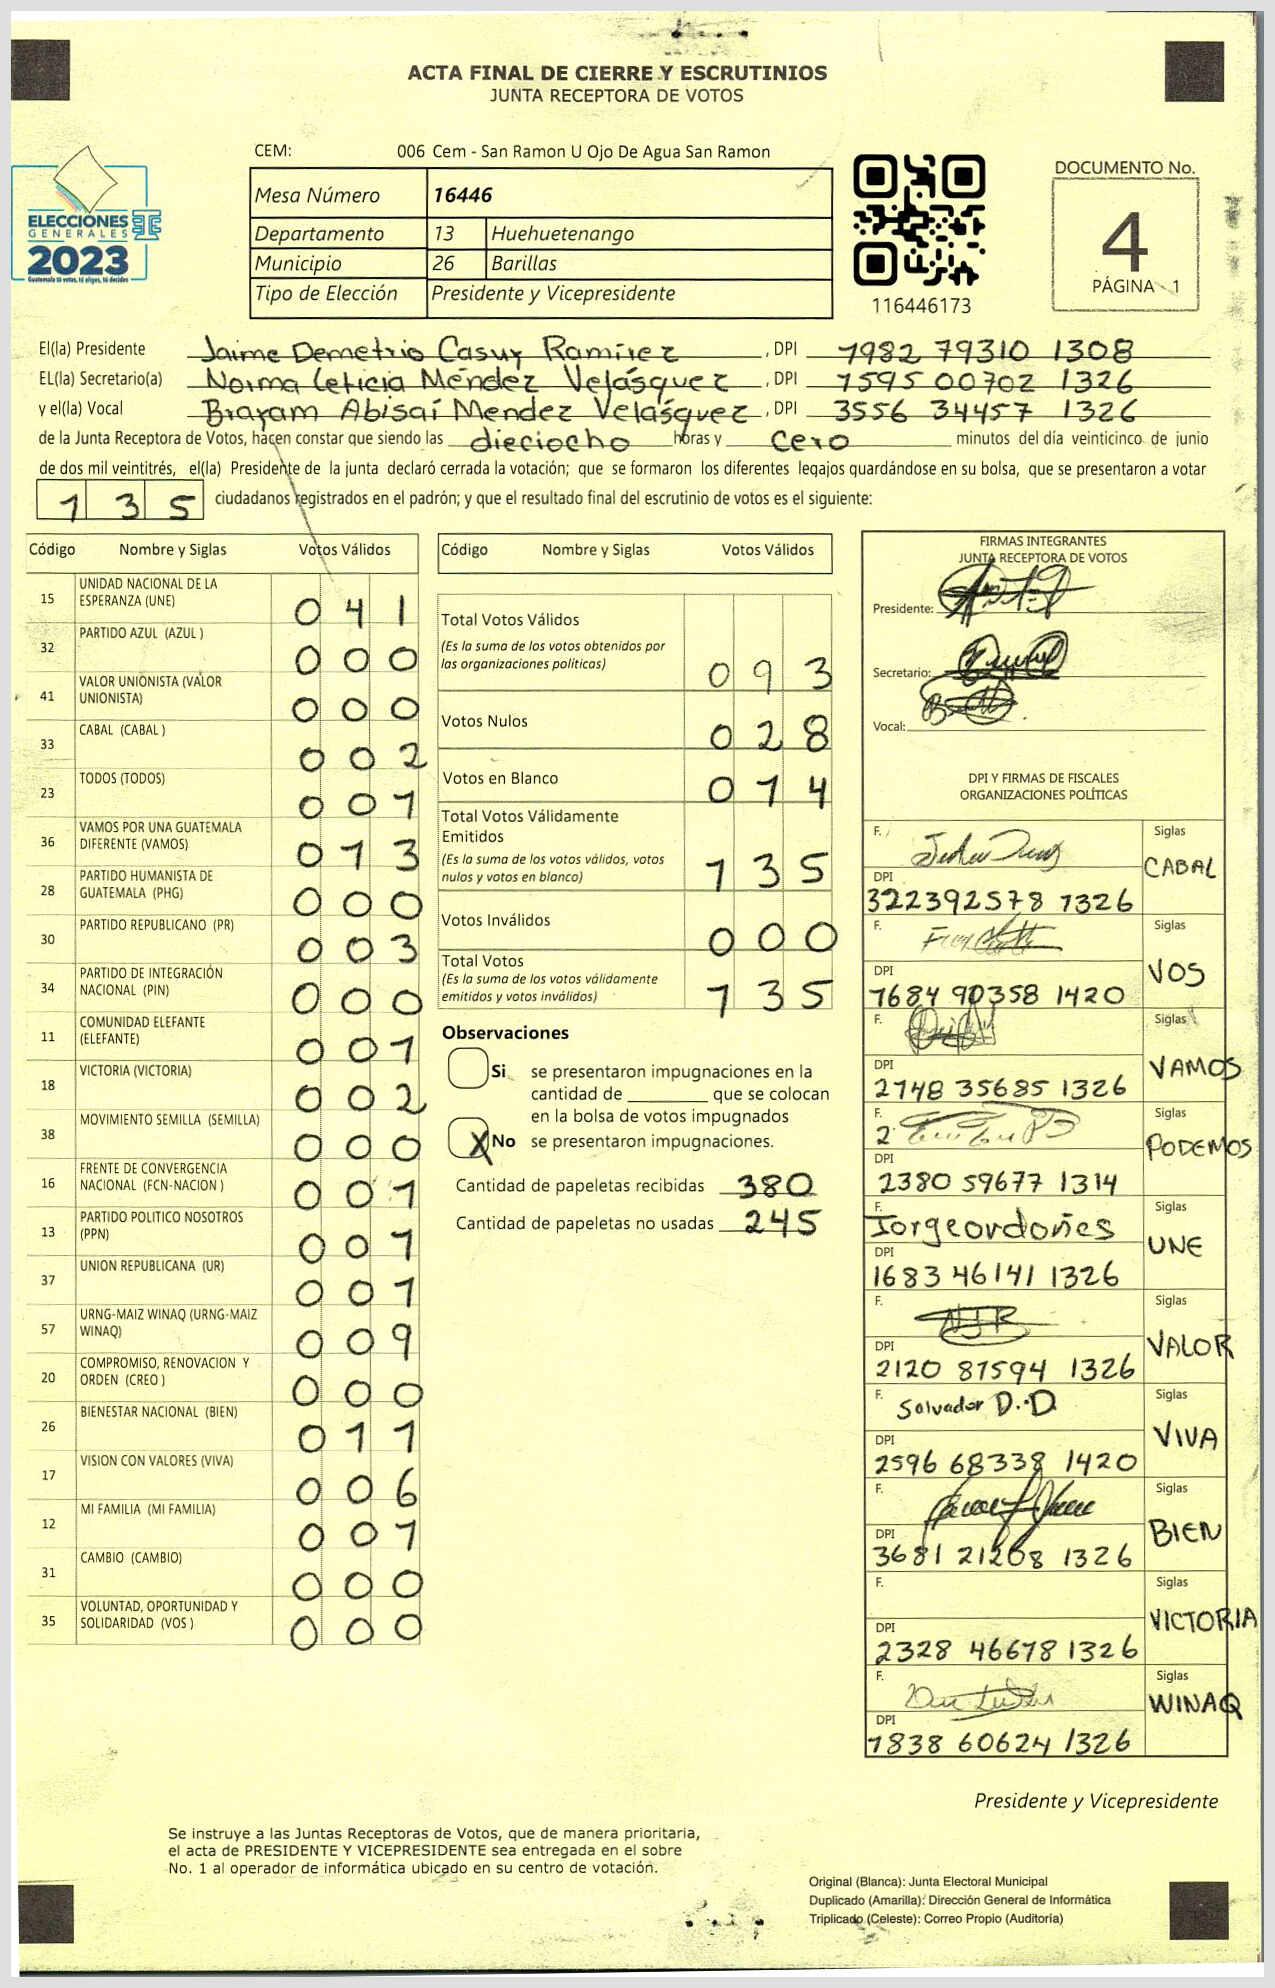 ACTA FINAL DE CIERRE Y ESCRUTINIOS
JUNTA RECEPTORA DE VOTOS
CEM: 006 Cem - San Ramon U Ojo De Agua San Ramon
Mesa Número 16446
Departamento 13 Huehuetenango
Municipio 26 Barillas
Tipo de Elección Presidente y Vicepresidente
ELECCIONES
GENERALES
2023
Guatemala tú votas, tú eliges, tú decides
116446173
DOCUMENTO No.
4
PÁGINA - 1
El(la) Presidente Jaime Demetrio Casuy Ramírez, DPI 1982 79310 1308
EL(la) Secretario(a) Norma Leticia Méndez Velásquez, DPI 1595 00702 1326
y el(la) Vocal Brayam Abisaí Mendez Velásquez, DPI 3556 34457 1326
de la Junta Receptora de Votos, hacen constar que siendo las dieciocho horas y cero minutos del día veinticinco de junio
de dos mil veintitrés, el(la) Presidente de la junta declaró cerrada la votación; que se formaron los diferentes legajos quardándose en su bolsa, que se presentaron a votar
135 ciudadanos registrados en el padrón; y que el resultado final del escrutinio de votos es el siguiente:
Código Nombre y Siglas Votos Válidos
15 UNIDAD NACIONAL DE LA ESPERANZA (UNE) 041
32 PARTIDO AZUL (AZUL ) 000
41 VALOR UNIONISTA (VALOR UNIONISTA) 000
33 CABAL (CABAL ) 002
23 TODOS (TODOS) 001
36 VAMOS POR UNA GUATEMALA DIFERENTE (VAMOS) 013
28 PARTIDO HUMANISTA DE GUATEMALA (PHG) 000
30 PARTIDO REPUBLICANO (PR) 003
34 PARTIDO DE INTEGRACIÓN NACIONAL (PIN) 000
11 COMUNIDAD ELEFANTE (ELEFANTE) 001
18 VICTORIA (VICTORIA) 002
38 MOVIMIENTO SEMILLA (SEMILLA) 000
16 FRENTE DE CONVERGENCIA NACIONAL (FCN-NACION ) 001
13 PARTIDO POLITICO NOSOTROS (PPN) 001
37 UNION REPUBLICANA (UR) 001
57 URNG-MAIZ WINAQ (URNG-MAIZ WINAQ) 009
20 COMPROMISO, RENOVACION Y ORDEN (CREO ) 000
26 BIENESTAR NACIONAL (BIEN) 011
17 VISION CON VALORES (VIVA) 006
12 MI FAMILIA (MI FAMILIA) 001
31 CAMBIO (CAMBIO) 000
35 VOLUNTAD, OPORTUNIDAD Y SOLIDARIDAD (VOS ) 000
Código Nombre y Siglas Votos Válidos
Total Votos Válidos
(Es la suma de los votos obtenidos por
las organizaciones políticas) 093
Votos Nulos 028
Votos en Blanco 014
Total Votos Válidamente
Emitidos
(Es la suma de los votos válidos, votos
nulos y votos en blanco) 135
Votos Inválidos 000
Total Votos
(Es la suma de los votos válidamente
emitidos y votos inválidos) 135
Observaciones
Si se presentaron impugnaciones en la
cantidad de ________ que se colocan
en la bolsa de votos impugnados
X No se presentaron impugnaciones.
Cantidad de papeletas recibidas 380
Cantidad de papeletas no usadas 245
FIRMAS INTEGRANTES
JUNTA RECEPTORA DE VOTOS
Presidente:
Secretario:
Vocal:
DPI Y FIRMAS DE FISCALES
ORGANIZACIONES POLÍTICAS
F. Siglas
CABAL
DPI
322392578 1326
F. Siglas
VOS
DPI
1684 90358 1420
F. Siglas
VAMOS
DPI
2748 35685 1326
F. Siglas
PODEMOS
DPI
2380 59677 1314
F. Jorgeordoñes Siglas
UNE
DPI
1683 46141 1326
F. NJR Siglas
VALOR
DPI
2120 87594 1326
F. Salvador D.D Siglas
VIVA
DPI
2596 68338 1420
F. Siglas
BIEN
DPI
3681 21208 1326
F. Siglas
VICTORIA
DPI
2328 46678 1326
F. Siglas
WINAQ
DPI
1838 60624 1326
Presidente y Vicepresidente
Se instruye a las Juntas Receptoras de Votos, que de manera prioritaria,
el acta de PRESIDENTE Y VICEPRESIDENTE sea entregada en el sobre
No. 1 al operador de informática ubicado en su centro de votación.
Original (Blanca): Junta Electoral Municipal
Duplicado (Amarilla): Dirección General de Informática
Triplicado (Celeste): Correo Propio (Auditoría)